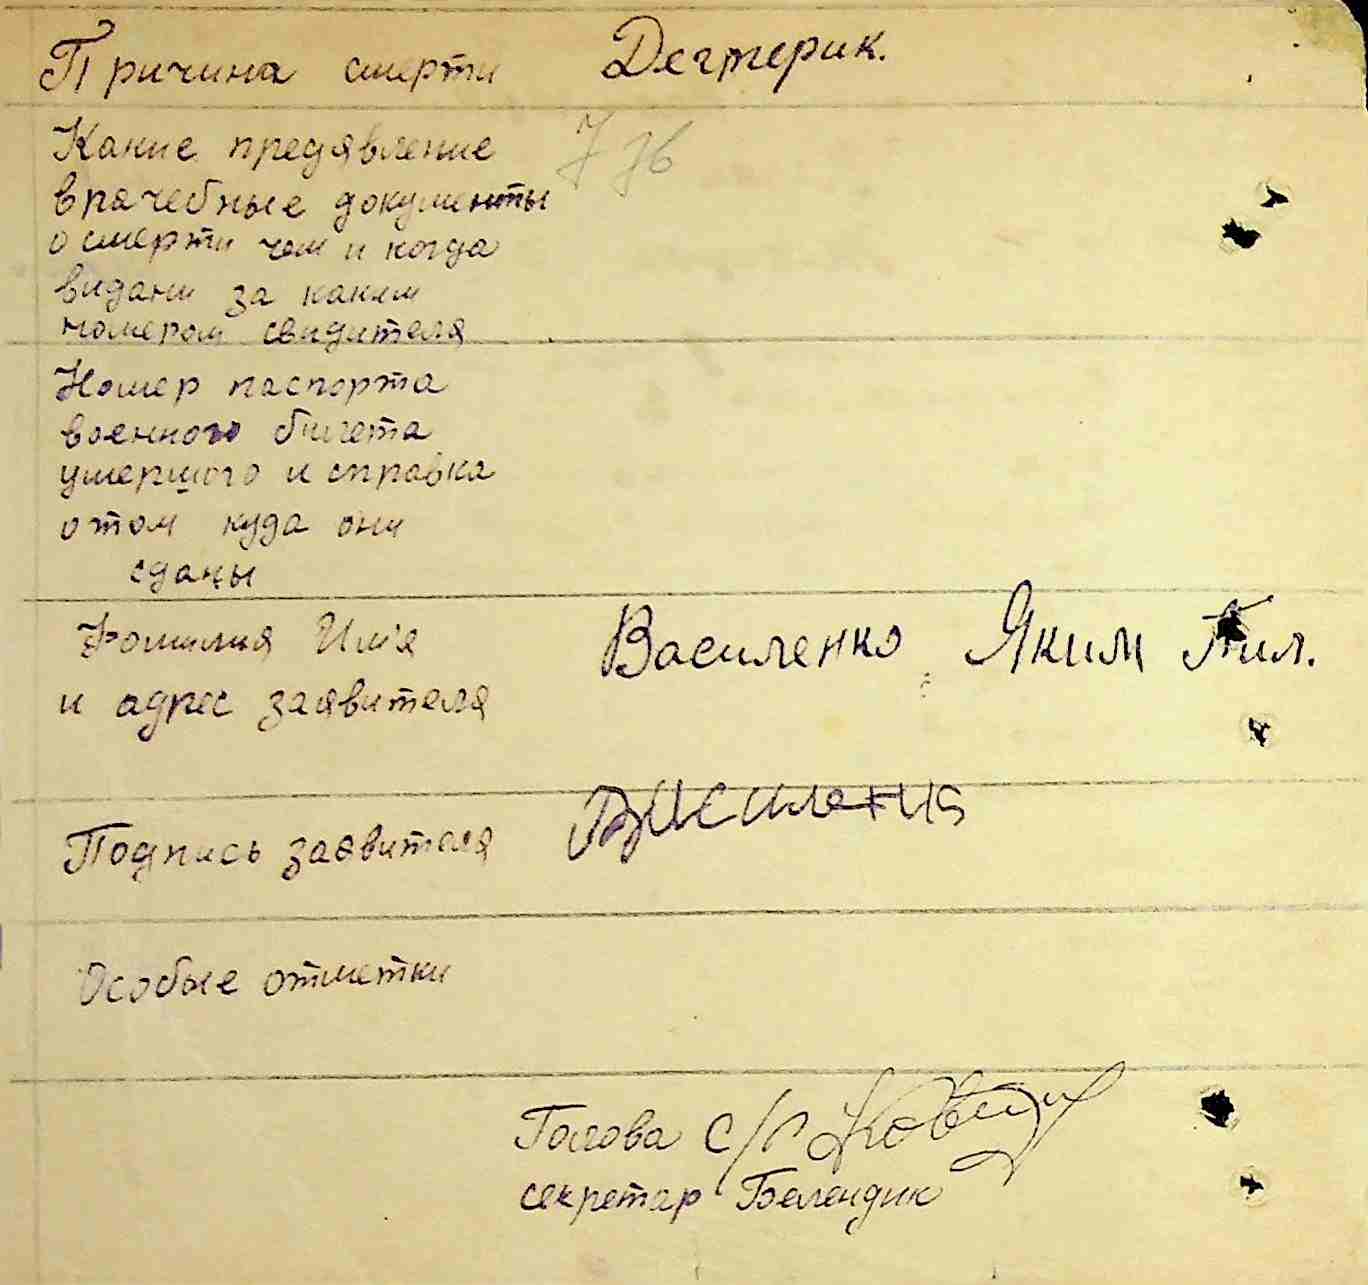 Причина смерти Дегтерик.
Какие предявление
врачебные документы
о смерти чем и когда
видани за каким
номером свидителя
Номер паспорта
военного билета
умершого и справка
о том куда они
сданы
Фомилия Им'я
и адрес заявителя
Василенко Яким Пил.
Подпись заявителя Василенко
Особые отметки
Голова с/р
секретар Белендик